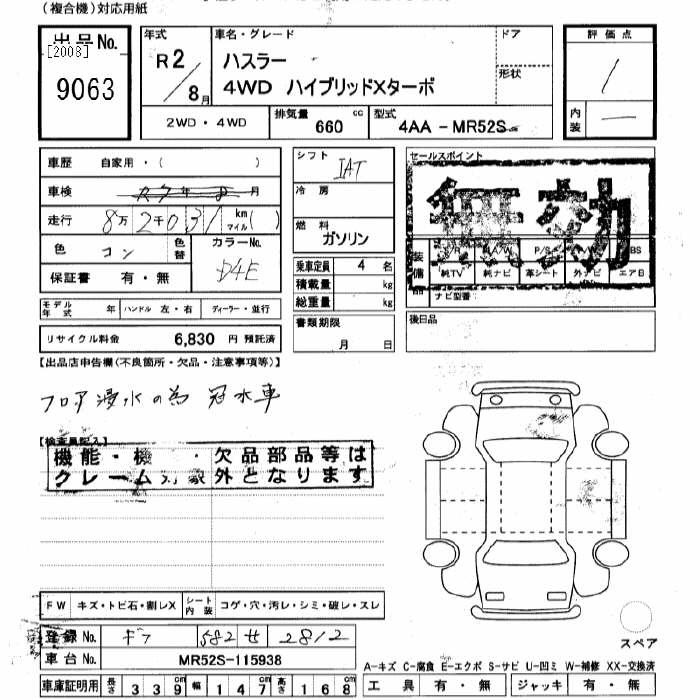 (複合機)対応用紙
出品No.
[2003]
9063
年式 R2/8月
車名・グレード
ハスラー
4WD ハイブリッドXターボ
ドア
形状
評価点
内装
2WD・4WD
排気量 660 cc
型式 4AA-MR52S
車歴 自家用・( )
車検 年 月
走行 8万2千031 km マイル ( )
色 コン 色替 カラーNo. D4E
保証書 有・無
モデル年式 年 ハンドル 左・右 ディーラー・並行
リサイクル料金 6,830 円 預託済
シフト IAT
冷房
燃料 ガソリン
乗車定員 4 名
積載量 kg
総重量 kg
書類期限
月 日
セールスポイント
無効
装備品
P/S
純TV 純ナビ 革シート 外ナビ エアB
ナビ型番
後日品
【出品店申告欄(不良箇所・欠品・注意事項等)】
フロア浸水の為 冠水車
【検査員記入】
機能・機 ・ 欠品部品等は
クレーム対象外となります
FW キズ・トビ石・割レX シート内装 コゲ・穴・汚レ・シミ・破レ・スレ
登録No. ギフ 582 せ 2812
車台No. MR52S-115938
車庫証明用 長さ 339 幅 147 高さ 168
スペア
A-キズ C-腐食 E-エクボ S-サビ U-凹ミ W-補修 XX-交換済
工具 有・無 ジャッキ 有・無